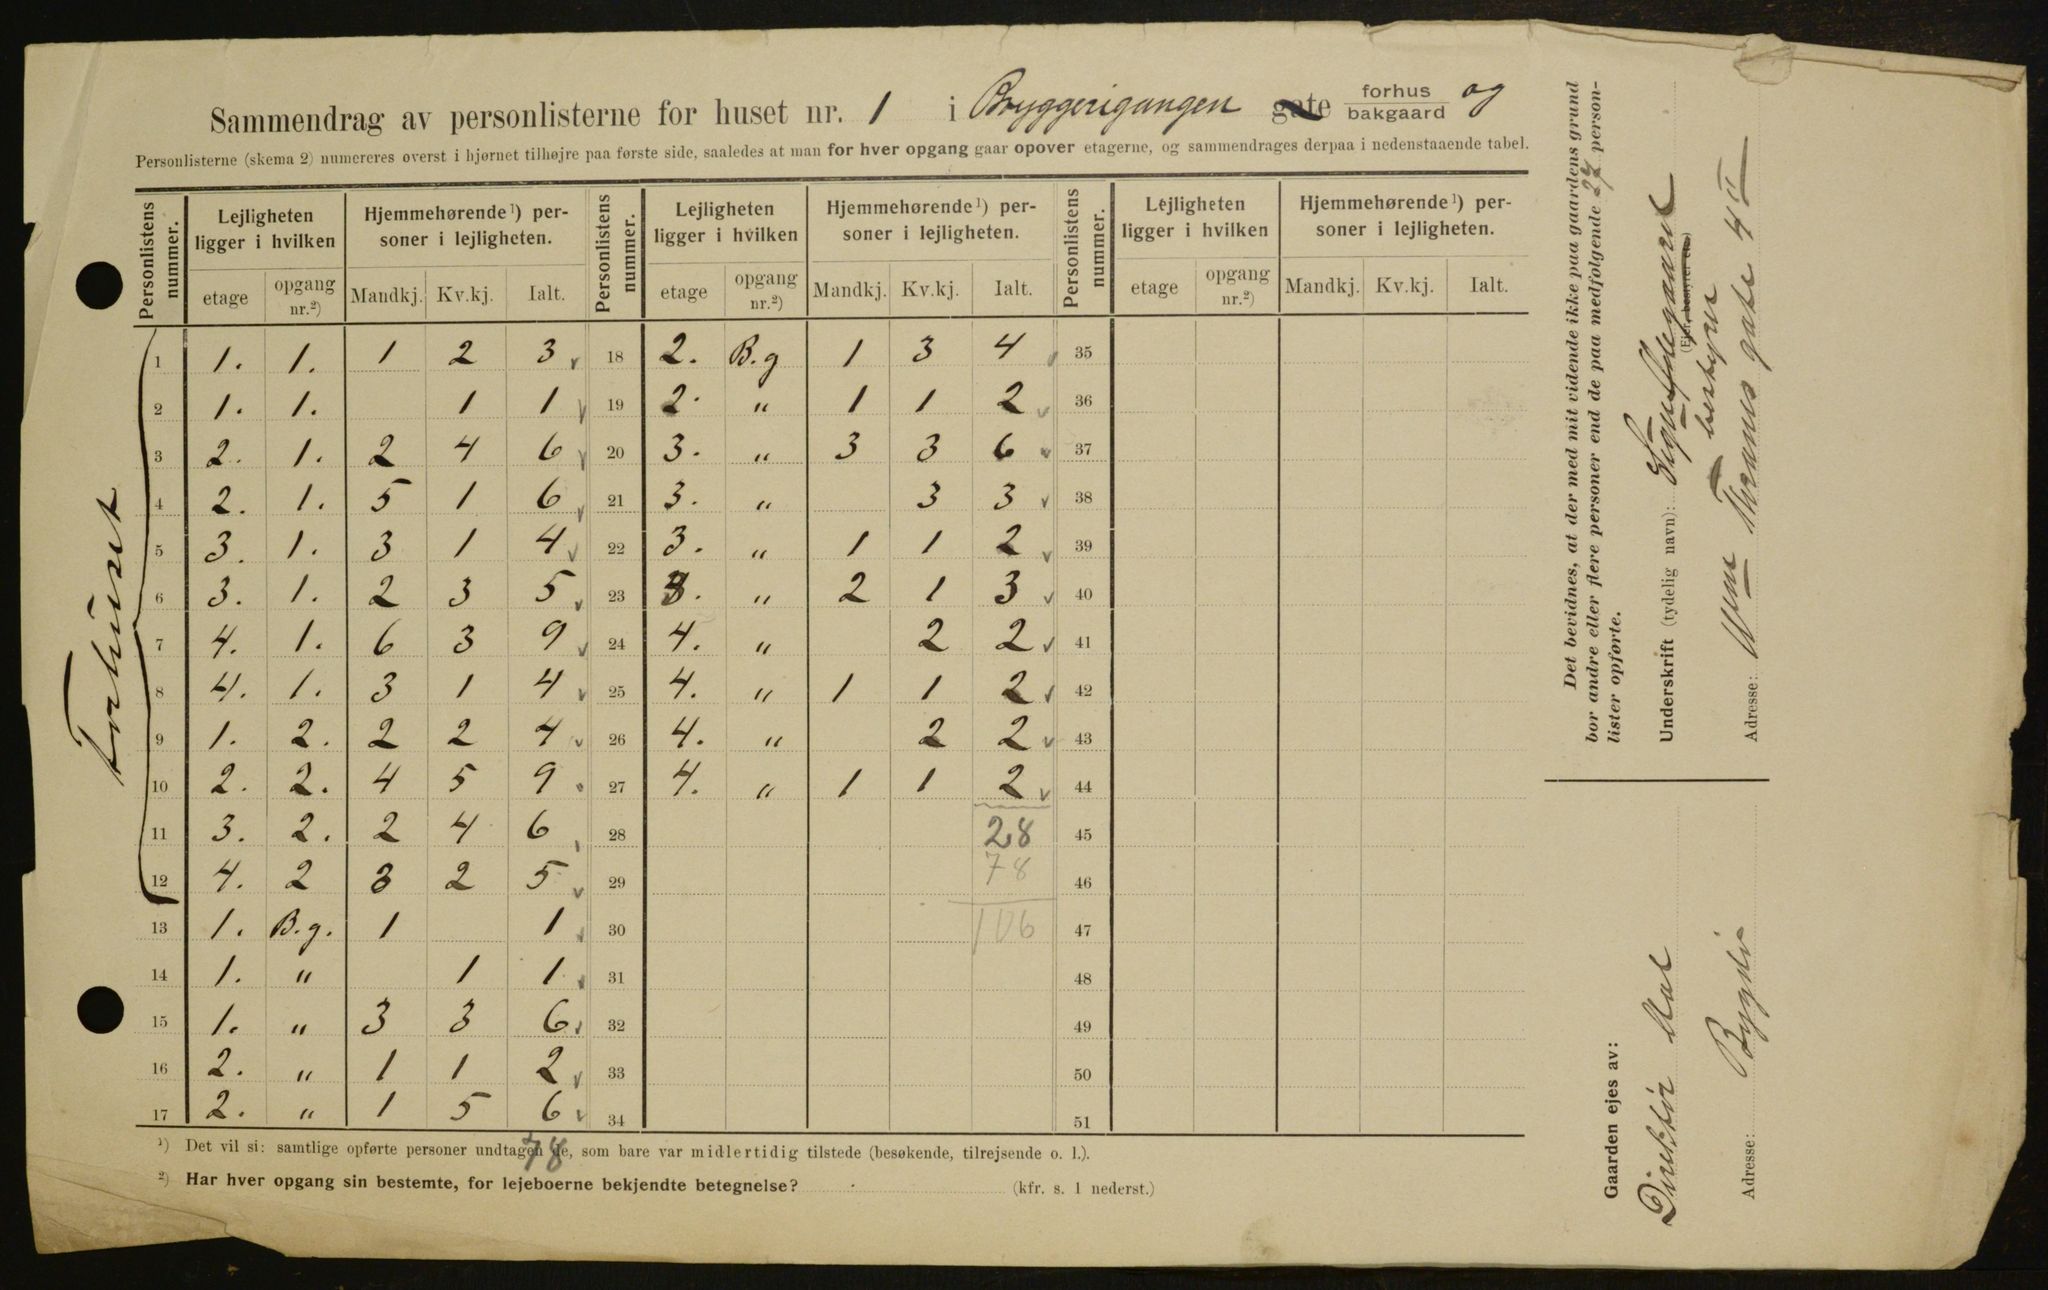 Sammendrag av personlisterne for huset nr. 1 i Bryggerigangen gate forhus bakgaard og
Personlisterne (skema 2) numereres øverst i hjørnet tilhøjre paa første side, saaledes at man for hver opgang gaar opover etagerne, og sammendrages derpaa i nedenstaaende tabel.
Personlistens nummer. Lejligheten ligger i hvilken Hjemmehørende 1) personer i lejligheten. Personlistens nummer. Lejligheten ligger i hvilken Hjemmehørende 1) personer i lejligheten. Personlistens nummer. Lejligheten ligger i hvilken Hjemmehørende 1) personer i lejligheten.
etage opgang nr.2) Mandkj. Kv.kj. Ialt. etage opgang nr.2) Mandkj. Kv.kj. Ialt. etage opgang nr.2) Mandkj. Kv.kj. Ialt.
Forhuset
1 1. 1. 1 2 3 18 2. B.g 1 3 4 35
2 1. 1. 1 1 19 2. " 1 1 2 36
3 2. 1. 2 4 6 20 3. " 3 3 6 37
4 2. 1. 5 1 6 21 3. " 3 3 38
5 3. 1. 3 1 4 22 3. " 1 1 2 39
6 3. 1. 2 3 5 23 3. " 2 1 3 40
7 4. 1. 6 3 9 24 4. " 2 2 41
8 4. 1. 3 1 4 25 4. " 1 1 2 42
9 1. 2. 2 2 4 26 4. " 2 2 43
10 2. 2. 4 5 9 27 4. " 1 1 2 44
11 3. 2. 2 4 6 28 28 45
12 4. 2 3 2 5 29 78 46
13 1. B.g. 1 1 30 106 47
14 1. " 1 1 31 48
15 1. " 3 3 6 32 49
16 2. " 1 1 2 33 50
17 2. " 1 5 6 34 51
78
1) Det vil si: samtlige opførte personer undtagen de, som bare var midlertidig tilstede (besøkende, tilrejsende o. l.).
2) Har hver opgang sin bestemte, for lejeboerne bekjendte betegnelse? (kfr. s. 1 nederst.)
Det bevidnes, at der med mit vidende ikke paa gaardens grund
bor andre eller flere personer end de paa medfølgende 27 person-
lister opførte.
Underskrift (tydelig navn):
(Ejer, bestyrer etc.)
bestyrer
Adresse: Thranes gate 4 II
Gaarden ejes av:
Direktør
Adresse: Bygdø